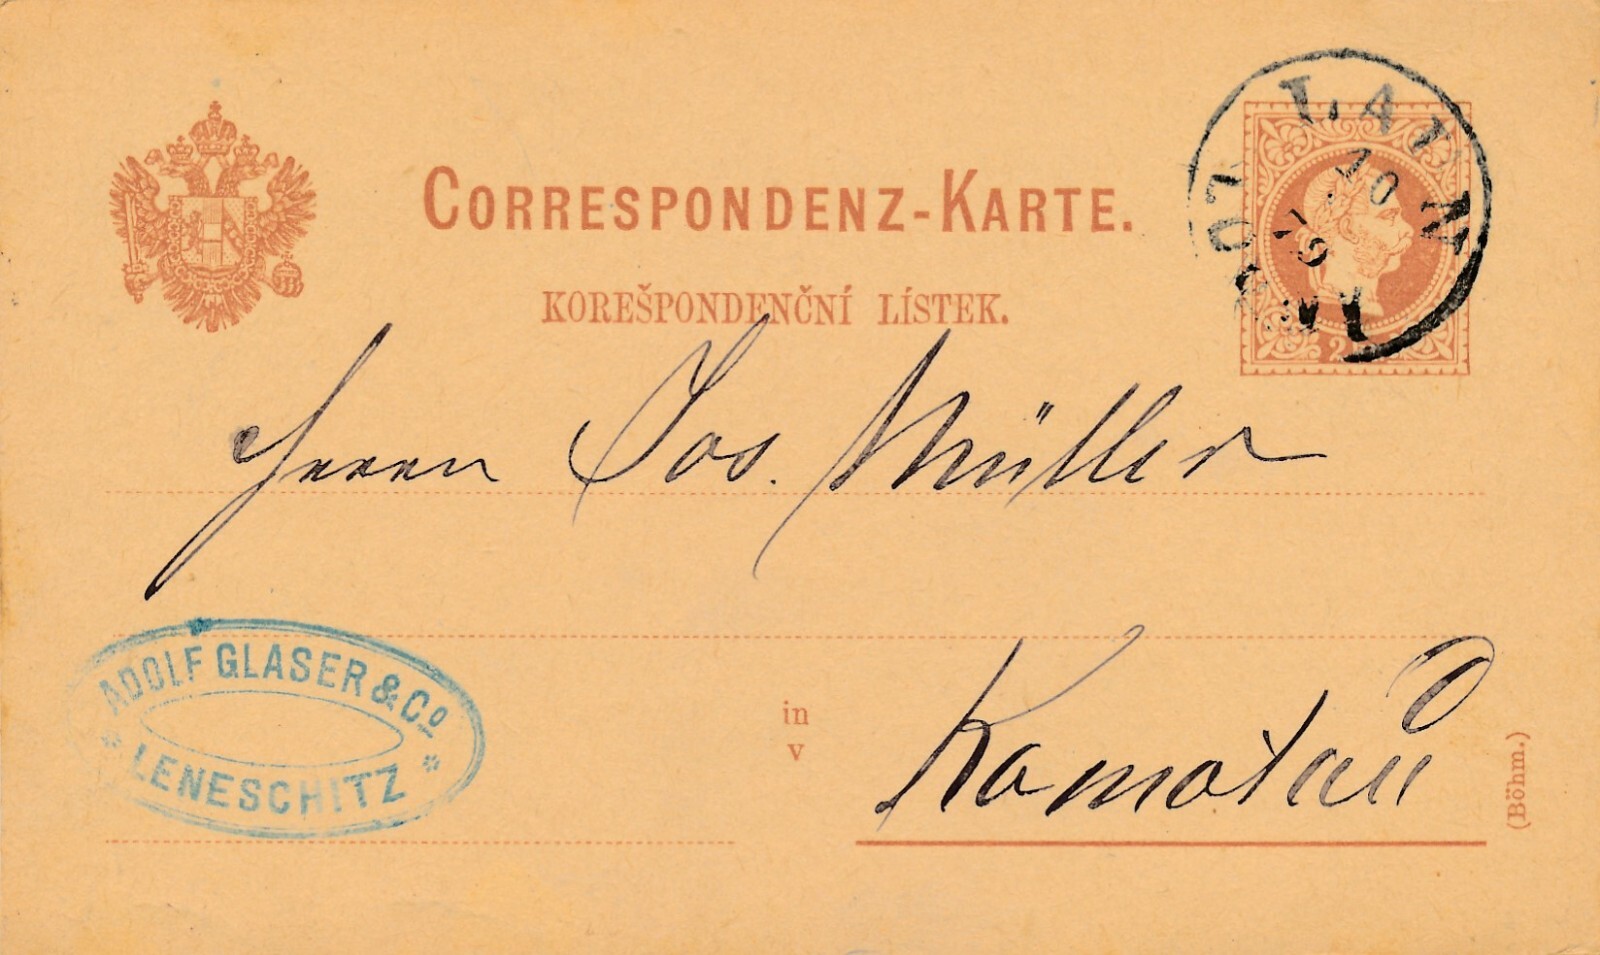 CORRESPONDENZ-KARTE.
KOREŠPONDENČNÍ LÍSTEK.
LAUN
LOUNY
10
79
2
Herrn Jos. Müller
ADOLF GLASER & Co
LENESCHITZ
in
v
Komotau
(Böhm.)